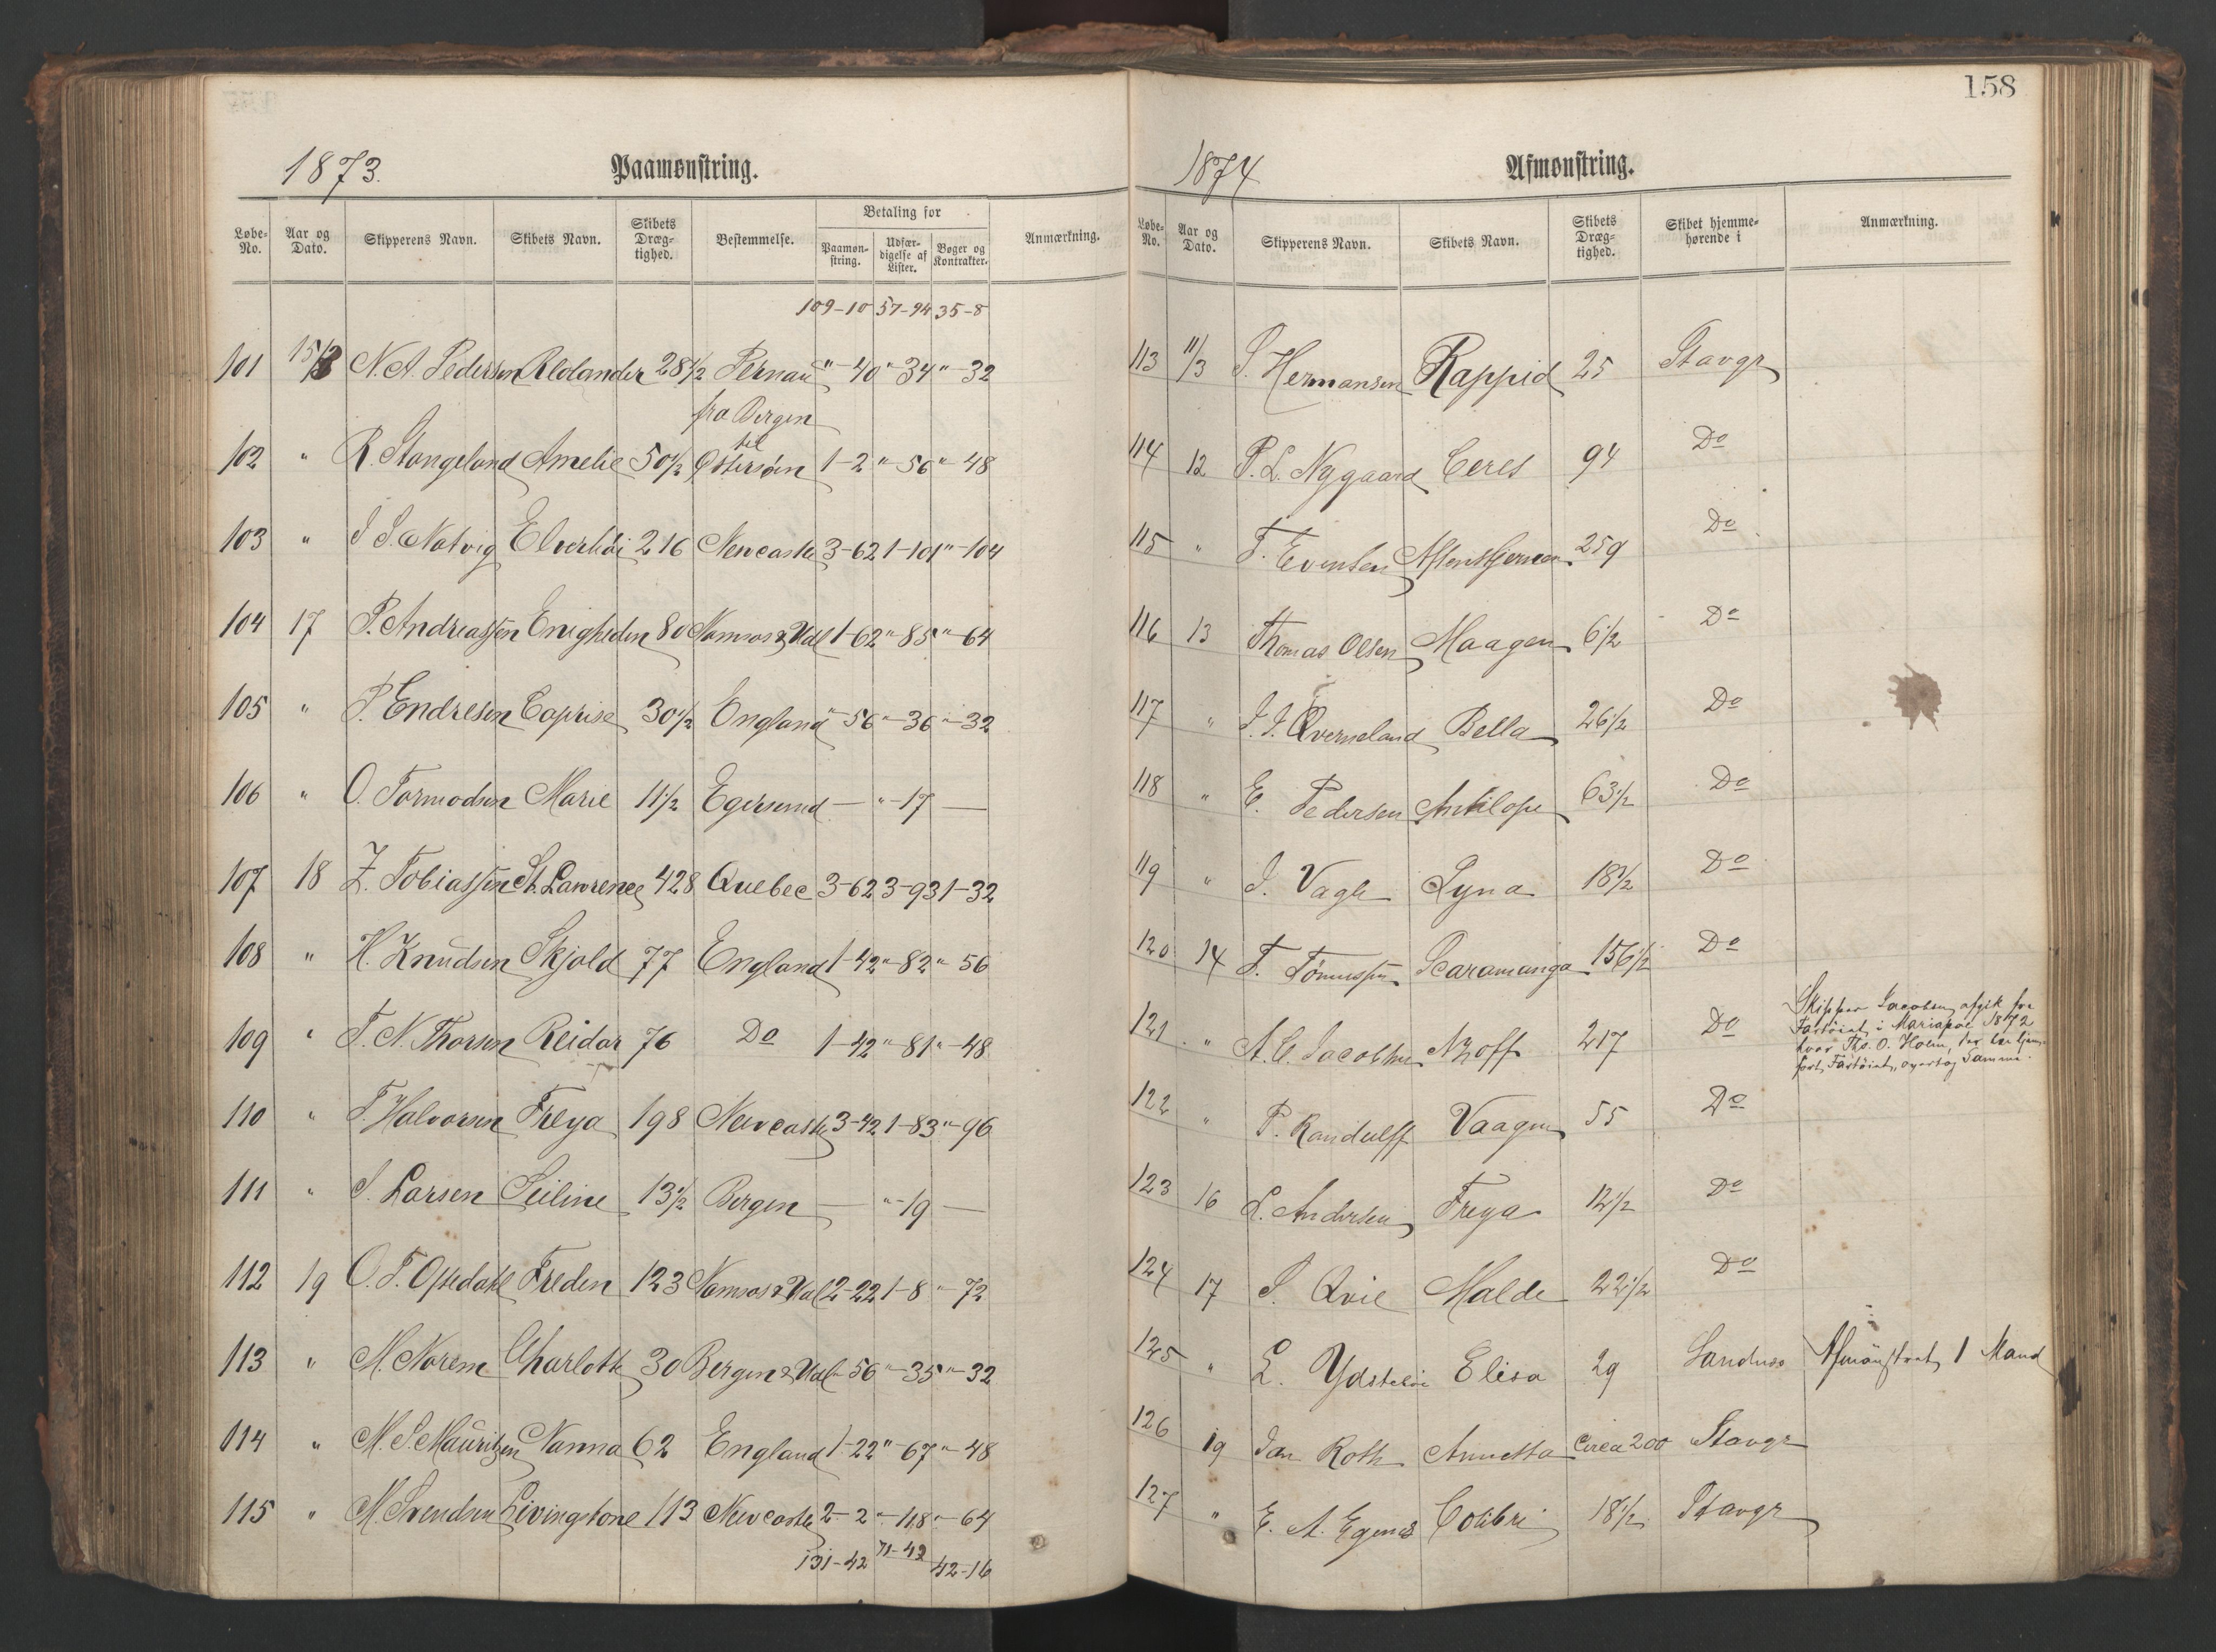 158
1873. Paamønstring.
Løbe-No. Aar og Dato. Skipperens Navn. Skibets Navn. Skibets Dræg-tighed. Bestemmelse. Betaling for Paamøn-string. Udfær-digelse af Lister. Bøger og Kontrakter. Anmærkning.
109-10 57-94 35-8
101 15/3 N. A. Pedersen 28 1/2 Pernau "-40 "-34 "-32
fra Bergen
til
102 " R. Stangeland Amelie 50 1/2 Østersøen 1-2 "-56 "-48
103 " Natvig Elverhøi 216 Newcastle 3-62 1-101 "-104
104 17 P. Andreassen Enigheden 80 Namsos & Udl 1-62 "-85 "-64
105 " P. Endresen Caprise 30 1/2 England "-56 "-36 "-32
106 " O. Tormodsen Marie 11 1/2 Egersund — "-17 —
107 18 Z. Tobiassen St. Lawrence 428 Quebec 3-62 3-93 1-32
108 " H. Knudsen Skjold 77 England 1-42 "-82 "-56
109 " T. N. Thorsen Reidar 76 Do 1-42 "-81 "-48
110 " T. Halvorsen Freya 198 Newcastle 3-42 1-83 "-96
111 " S. Larsen Seiline 13 1/2 Bergen — "-19 —
112 19 O. T. Opsedahl Freden 123 Namsos & Udl 2-22 1-8 "-72
113 " M. Norem Charlotte 30 Bergen & Udl "-56 "-35 "-32
114 " M. S. Mauritzen Nanna 62 England 1-22 "-67 "-48
115 " M. Svendsen Livingstone 113 Newcastle 2-2 "-118 "-64
131-42 71-42 42-16
1874 Afmønstring.
Løbe-No. Aar og Dato. Skipperens Navn. Skibets Navn. Skibets Dræg-tighed. Skibet hjemme-hørende i Anmærkning.
113 11/3 S. Hermansen Rappid 25 Stavgr
114 12 P. L. Nygaard Ceres 94 Do
115 " T. Evensen Aftenstjernen 259 Do
116 13 Thomas Olsen Maagen 6 1/2 Do
117 " J. J. Qverneland Bella 26 1/2 Do
118 " E. Pedersen Antilope 63 1/2 Do
119 " J. Vagle Lyna 18 1/2 Do
120 14 T. Tønnessen Scaramanga 156 1/2 Do
121 " A. C. Jacobsen Azoff 217 Do Skipper Jacobsen afgik fra
Fartøiet i Mariapoe 1872
hvor Ths. O. Holm, der har hjem-
ført Fartøiet, overtog Samme.
122 " P. Randulff Vaagen 55 Do
123 16 L. Andersen Freya 12 1/2 Do
124 17 S. Qvie Malde 22 1/2 Do
125 " L. Ydstebøe Elisa 29 Afmønstret 1 Mand
126 19 Jan Roth Annetta Circa 200 Stavgr
127 " E. A. Egenes Colibri 18 1/2 Stavgr